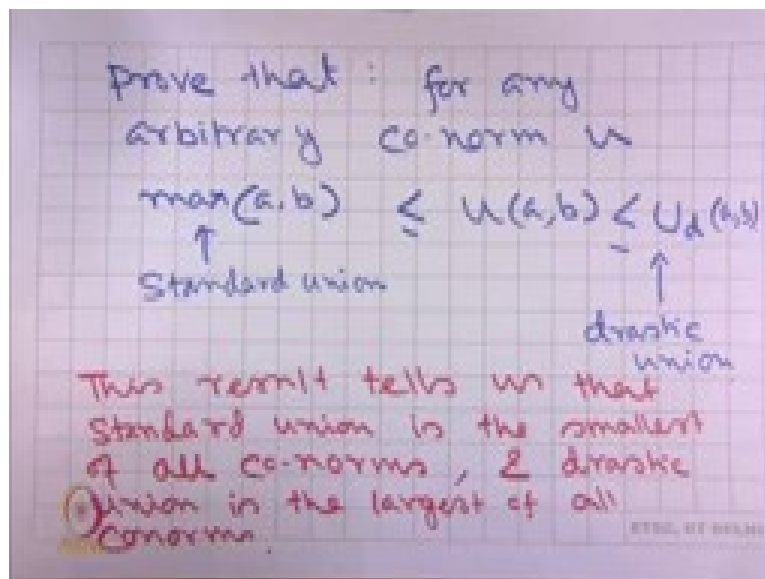 prove that : for any
arbitrary co-norm u
max(a,b) ≤ u(a,b) ≤ Ud(a,b)
↑
Standard union
↑
drastic
union
This result tells us that
standard union is the smallest
of all co-norms, & drastic
union is the largest of all
conorms.